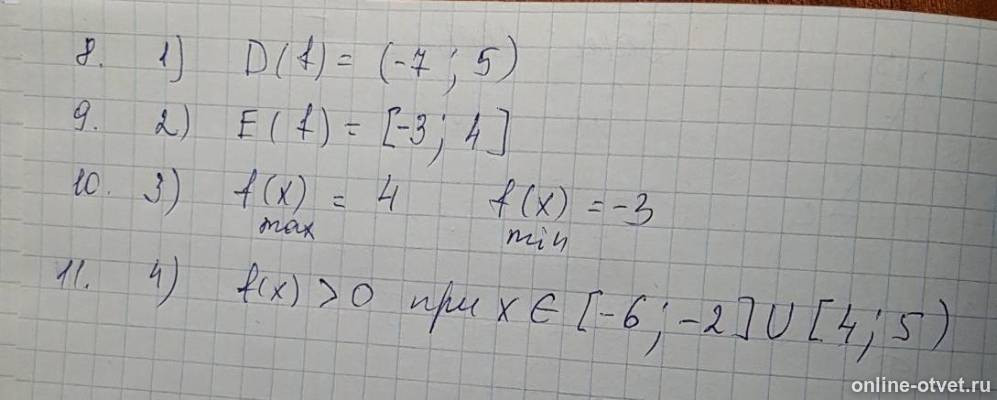 8. 1) D(f) = (-7; 5)
9. 2) E(f) = [-3; 4]
10. 3) f(x) = 4 f(x) = -3
max min
11. 4) f(x) > 0 при x ∈ [-6; -2] U [4; 5)
online-otvet.ru